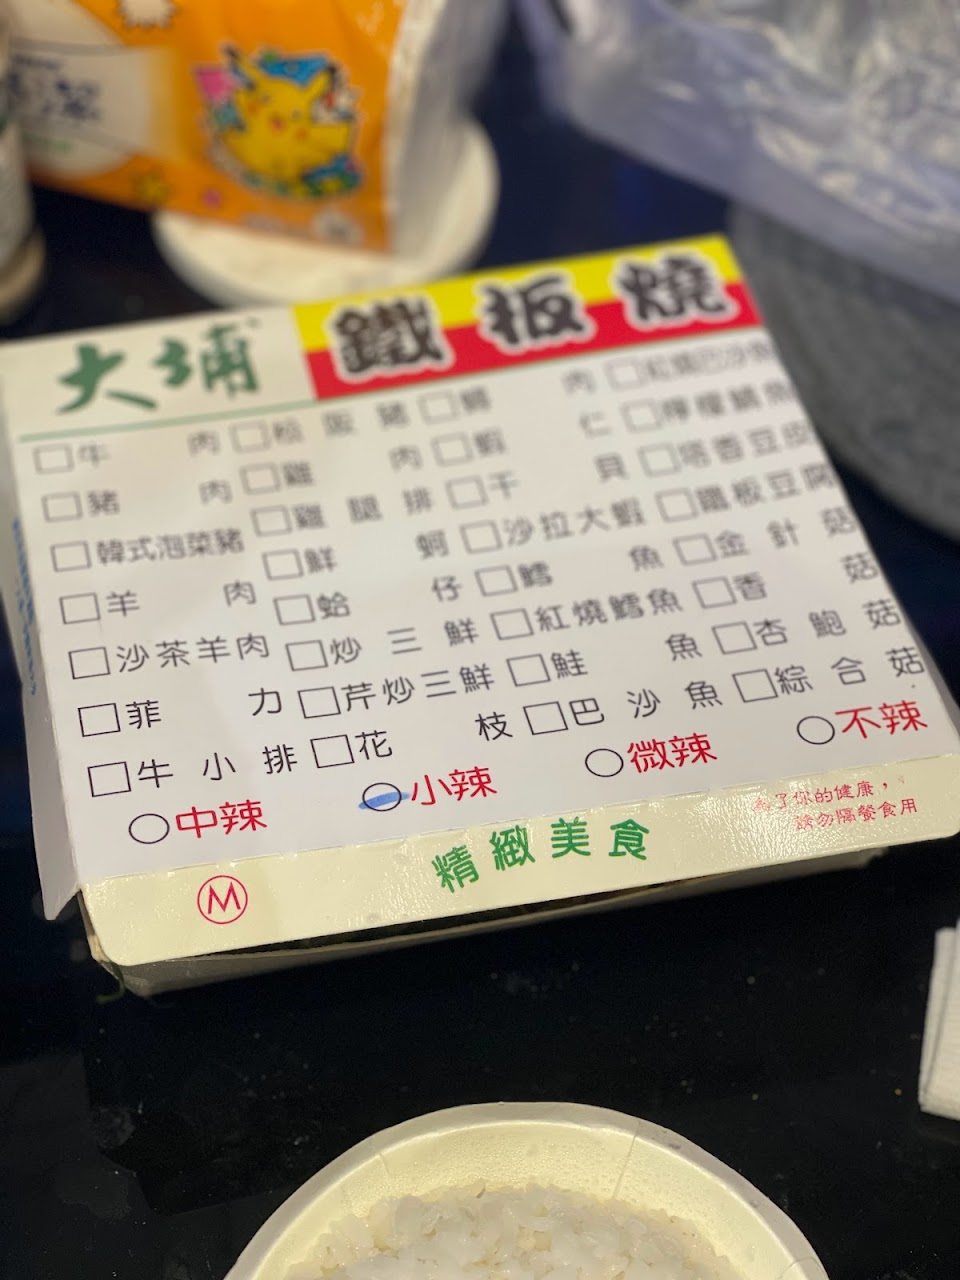 大埔 鐵板燒
□牛肉 □松阪豬 □鱘肉 □紅燒巴沙魚
□豬肉 □雞肉 □蝦仁 □檸檬鯛魚
□韓式泡菜豬 □雞腿排 □干貝 □塔香豆皮
□羊肉 □鮮蚵 □沙拉大蝦 □鐵板豆腐
□沙茶羊肉 □蛤仔 □鱈魚 □金針菇
□菲力 □炒三鮮 □紅燒鱈魚 □香菇
□牛小排 □芹炒三鮮 □鮭魚 □杏鮑菇
□花枝 □巴沙魚 □綜合菇
○中辣 ○小辣 ○微辣 ○不辣
為了你的健康，
請勿隔餐食用
精緻美食
M